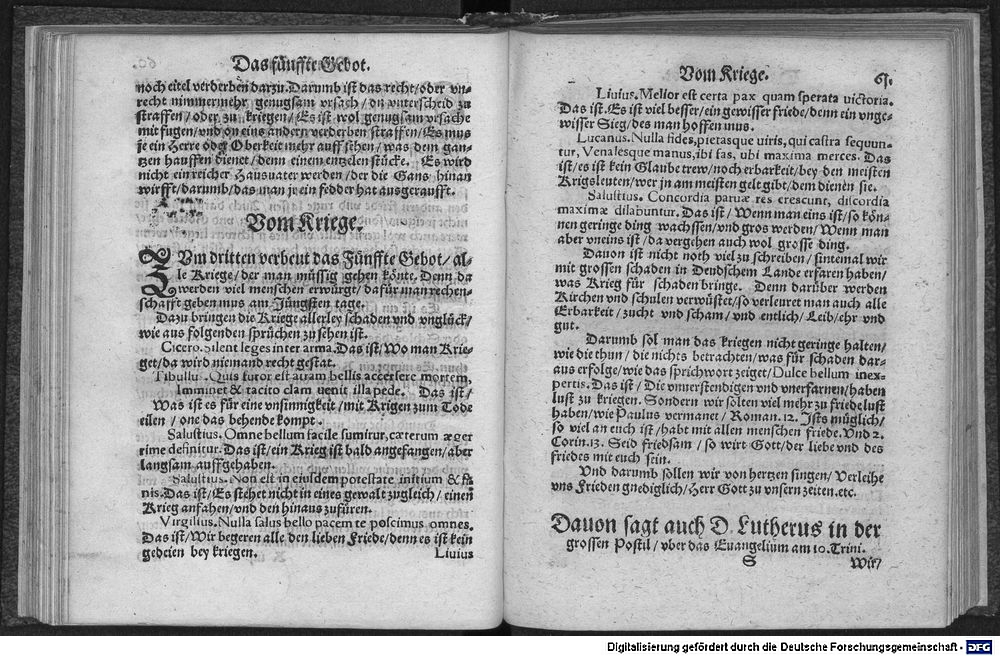 Das fünffte Gebot.
noch eitel verderben darzu. Darumb ist das recht/oder vn-
recht nimmermehr genugsam vrsach/on vnterscheid zu
straffen/oder zu kriegen/Es ist wol genugsam vrsache
mit fugen/vnd on eins andern verderben straffen/Es mus
je ein Herre oder Oberkeit mehr auff sehen/was dem gan-
tzen hauffen dienet/denn einem entzelen stücke. Es wird
nicht ein reicher Hausuater werden/der die Gans hinan
wirfft/darumb/das man jr ein fedder hat ausgeraufft.
Vom Kriege.
ZVm dritten verbeut das Fünffte Gebot/al-
le Kriege/der man müssig gehen könte. Denn da
werden viel menschen erwürgt/dafür man rechen-
schafft geben mus am Jüngsten tage.
Dazu bringen die Kriege allerley schaden vnd vnglück/
wie aus folgenden sprüchen zu sehen ist.
Cicero. Silent leges inter arma. Das ist/Wo man Krie-
get/da wird niemand recht gestat.
Tibullus. Quis furor est atram bellis accersere mortem,
Imminet & tacito clam uenit illa pede. Das ist/
Was ist es für eine vnsinnigkeit/mit Krigen zum Tode
eilen/one das behende kompt.
Salustius. Omne bellum facile sumitur, cæterum æger
rime definitur. Das ist/ein Krieg ist bald angefangen/aber
langsam auffgehaben.
Salustius. Non est in eiusdem potestate initium & fi
nis. Das ist/Es stehet nicht in eines gewalt zugleich/einen
Krieg anfahen/vnd den hinaus zufüren.
Virgilius. Nulla salus bello pacem te poscimus omnes.
Das ist/Wir begeren alle den lieben Friede/denn es ist kein
gedeien bey kriegen. Liuius
Vom Kriege. 61.
Liuius. Melior est certa pax quam sperata uictoria.
Das ist. Es ist viel besser/ein gewisser friede/denn ein vnge-
wisser Sieg/des man hoffen mus.
Lucanus. Nulla fides, pietasque uiris, qui castra sequun-
tur, Venalesque manus, ibi fas, ubi maxima merces. Das
ist/es ist kein Glaube trew/noch erbarkeit/bey den meisten
Krigsleuten/wer jn am meisten gelt gibt/dem dienen sie.
Salustius. Concordia paruæ res crescunt, discordia
maximæ dilabuntur. Das ist/Wenn man eins ist/so kön-
nen geringe ding wachssen/vnd gros werden/Wenn man
aber vneins ist/da vergehen auch wol grosse ding.
Dauon ist nicht noth viel zu schreiben/sintemal wir
mit grossen schaden in Deudschem Lande erfaren haben/
was Krieg für schaden bringe. Denn darüber werden
Kirchen vnd schulen verwüstet/so verleuret man auch alle
Erbarkeit/zucht vnd scham/vnd entlich/Leib/ehr vnd
gut.
Darumb sol man das kriegen nicht geringe halten/
wie die thun/die nichts betrachten/was für schaden dar-
aus erfolge/wie das sprichwort zeiget/Dulce bellum inex-
pertis. Das ist/Die vnuerstendigen vnd vnerfarnen/haben
lust zu kriegen. Sondern wir sölten viel mehr zu friede lust
haben/wie Paulus vermanet/Roman. 12. Jsts müglich/
so viel an euch ist/habt mit allen menschen friede. Vnd 2.
Corin. 13. Seid friedsam/so wirt Gott/der liebe vnd des
friedes mit euch sein.
Vnd darumb söllen wir von hertzen singen/Verleihe
vns Frieden gnediglich/Herr Gott zu vnsern zeiten. etc.
Dauon sagt auch D. Lutherus in der
grossen Postil/vber das Euangelium am 10. Trini.
S Wir/
Digitalisierung gefördert durch die Deutsche Forschungsgemeinschaft - DFG